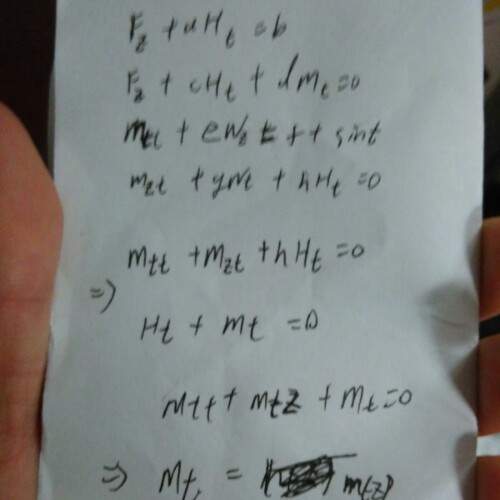 F_z + aH_t = b
F_z + cH_t + dm_t = 0
m_tt + eN_z = f + sint
m_zt + gN_t + hH_t = 0
m_tt + m_zt + hH_t = 0
⇒
H_t + m_t = 0
m_tt + m_tz + m_t = 0
⇒ m_t = m(z)